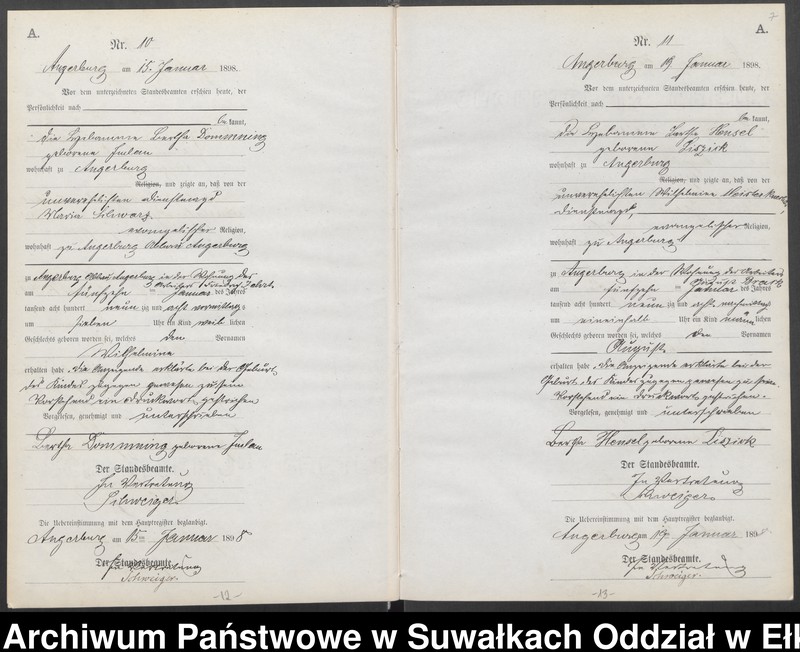 A.
Nr. 10
Angerburg am 15. Januar 1898.
Vor dem unterzeichneten Standesbeamten erschien heute, der
Persönlichkeit nach
be kannt,
die Hebamme Bertha Dommning
geborene
wohnhaft zu Angerburg
Religion, und zeigte an, daß von der
unverehelichten Dienstmagd
Maria Schwarz
evangelischer Religion,
wohnhaft zu Angerburg Abbau Angerburg
zu Angerburg Abbau Angerburg in der Wohnung des
Arbeiters Friedrich
am fünfzehn ten Januar des Jahres
tausend acht hundert neun zig und acht vormittags
um sieben Uhr ein Kind weib lichen
Geschlechts geboren worden sei, welches den Vornamen
Wilhelmine
erhalten habe. Die Anzeigende erklärte bei der Geburt
des Kindes zugegen gewesen zu sein.
Vorstehend ein Druckwort gestrichen
Vorgelesen, genehmigt und unterschrieben
Bertha Dommning geborene
Der Standesbeamte.
In Vertretung
Schweiger.
Die Uebereinstimmung mit dem Hauptregister beglaubigt.
Angerburg am 15ten Januar 1898
Der Standesbeamte.
In Vertretung
Schweiger.
-12-
7
A.
Nr. 11
Angerburg am 19. Januar 1898.
Vor dem unterzeichneten Standesbeamten erschien heute, der
Persönlichkeit nach
be kannt,
die Hebamme Bertha Hensel
geborene Liszick
wohnhaft zu Angerburg
Religion, und zeigte an, daß von der
unverehelichten Wilhelmine
Dienstmagd,
evangelischer Religion,
wohnhaft zu Angerburg
zu Angerburg in der Wohnung des Arbeiters
August
am fünfzehn ten Januar des Jahres
tausend acht hundert neun zig und acht nachmittags
um eineinhalb Uhr ein Kind männ lichen
Geschlechts geboren worden sei, welches den Vornamen
August
erhalten habe. Die Anzeigende erklärte bei der
Geburt des Kindes zugegen gewesen zu sein.
Vorstehend ein Druckwort gestrichen.
Vorgelesen, genehmigt und unterschrieben
Bertha Hensel geborene Liszick
Der Standesbeamte.
In Vertretung
Schweiger.
Die Uebereinstimmung mit dem Hauptregister beglaubigt.
Angerburg am 19ten Januar 1898
Der Standesbeamte.
In Vertretung
Schweiger.
-13-
Archiwum Państwowe w Suwałkach Oddział w Ełk